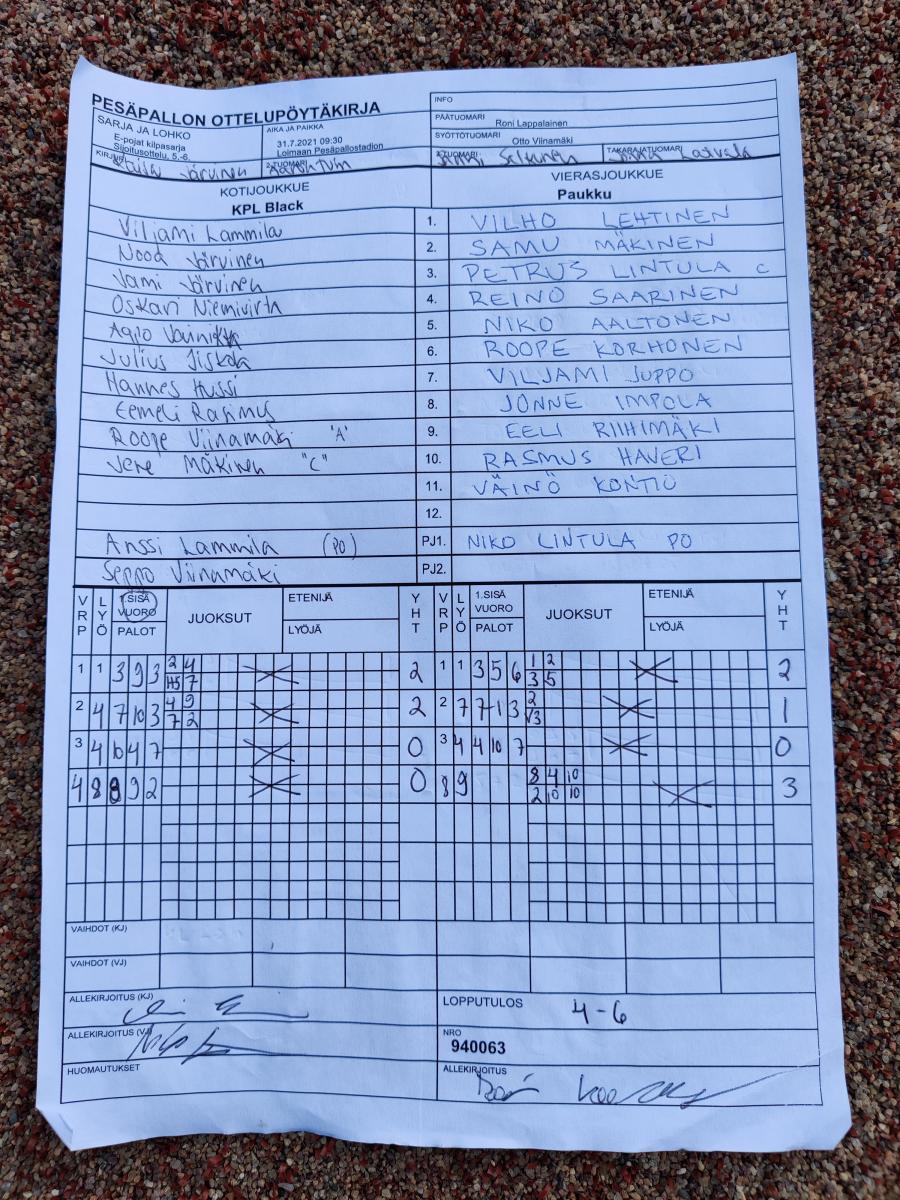 PESÄPALLON OTTELUPÖYTÄKIRJA
INFO
SARJA JA LOHKO
E-pojat kilpasarja
Sijoitusottelu, 5.-6.
AIKA JA PAIKKA
31.7.2021 09:30
Loimaan Pesäpallostadion
PÄÄTUOMARI
Roni Lappalainen
SYÖTTÖTUOMARI
Otto Viinamäki
KIRJURI
Järvinen
2-TUOMARI
3-TUOMARI
TAKARAJATUOMARI
KOTIJOUKKUE
KPL Black
VIERASJOUKKUE
Paukku
Viljami Lammila 1. VILHO LEHTINEN
Nooa Järvinen 2. SAMU MÄKINEN
Jami Järvinen 3. PETRUS LINTULA C
Oskari Niemivirta 4. REINO SAARINEN
5. NIKO AALTONEN
Julius 6. ROOPE KORHONEN
Hannes Hussi 7. VILJAMI JUPPO
Eemeli Rasmus 8. JONNE IMPOLA
Roope Viinamäki "A" 9. EELI RIIHIMÄKI
Jere Mäkinen "C" 10. RASMUS HAVERI
11. VÄINÖ KONTIO
12.
Anssi Lammila (PO) PJ1. NIKO LINTULA PO
Seppo Viinamäki PJ2.
VRP LYÖ 1.SISÄ VUORO PALOT JUOKSUT ETENIJÄ LYÖJÄ YHT VRP LYÖ 1.SISÄ VUORO PALOT JUOKSUT ETENIJÄ LYÖJÄ YHT
1 1 3 9 3 2 4 2 1 1 3 5 6 1 2 2
H5 7 3 5
2 4 7 10 3 4 9 2 2 7 7 1 3 2 1
7 2 V3
3 4 10 4 7 0 3 4 4 10 7 0
4 8 8 9 2 0 8 9 8 4 10 3
2 10 10
VAIHDOT (KJ)
VAIHDOT (VJ)
ALLEKIRJOITUS (KJ)
LOPPUTULOS 4-6
ALLEKIRJOITUS (VJ)
NRO
940063
HUOMAUTUKSET
ALLEKIRJOITUS